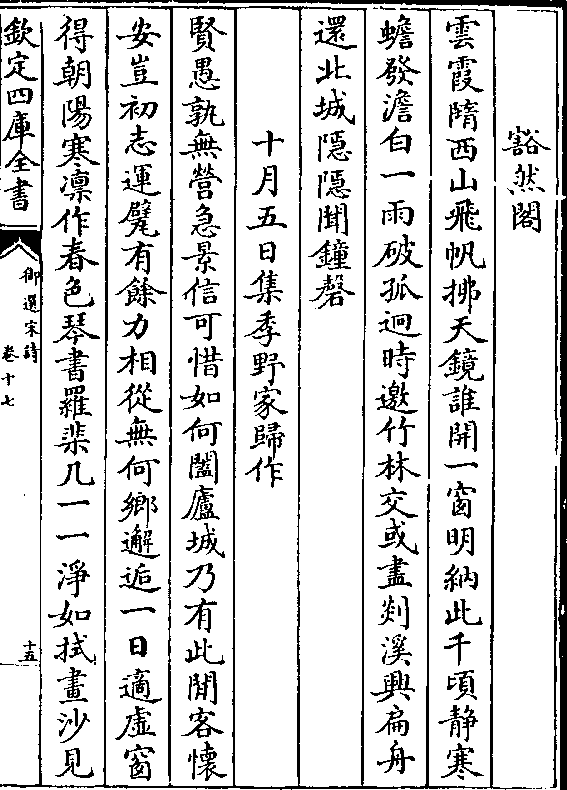 豁然閣
雲霞隋西山飛帆拂天鏡誰開一窗明納此千頃静寒
蟾發澹白一雨破孤迥時邀竹林交或盡剡溪興扁舟
還北城隠隠聞鐘磬
十月五日集季野家歸作
賢愚孰無營急景信可惜如何闔廬城乃有此閒客懷
安豈初志運甓有餘力相從無何鄉邂逅一日適虛窗
得朝陽寒凛作春色琴書羅棐几一一淨如拭畫沙見
欽定四庫全書
御選宋詩
卷十七
十五